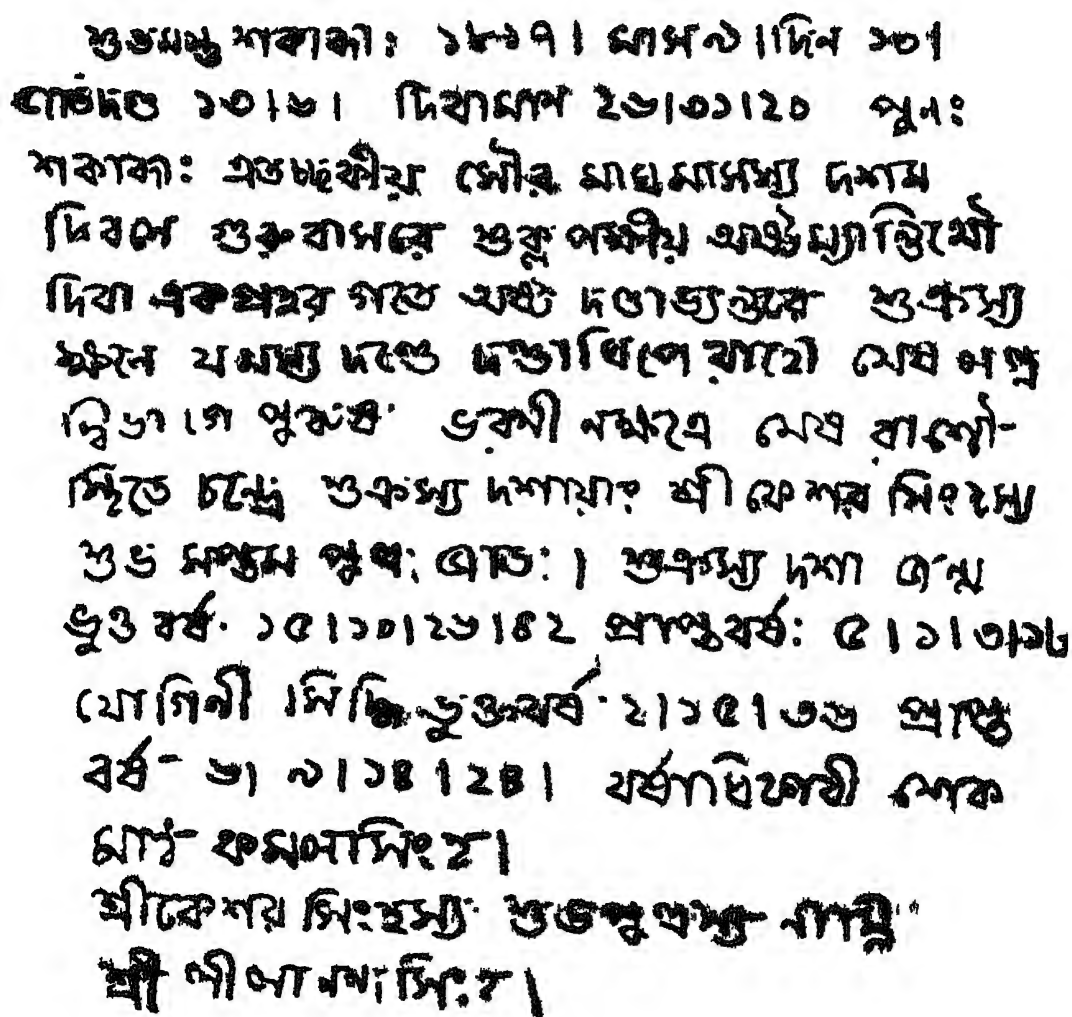 শুভমস্তু শকাব্দাঃ ১৮১৭। মাস ৯। দিন ১০।
দণ্ড ১৩।৬। দিবামান ২৬।৩১।২০ পুনঃ
শকাব্দাঃ এতচ্ছকীয় সৌর মাঘমাসস্য দশম
দিবসে গুরুবাসরে শুক্ল পক্ষীয় অষ্টম্যান্তিথৌ
দিবা একপ্রহর গতে অষ্ট দণ্ডাভ্যন্তরে শুক্রস্য
ক্ষনে যমস্য দণ্ডে দণ্ডাধিপে রাহৌ মেষ লগ্ন
দ্বিভাগে ভরণী নক্ষত্রে মেষ রাশৌ-
স্থিতে চন্দ্রে শুক্রস্য দশায়াং শ্রী কেশর সিংহস্য
শুভ সপ্তম পুত্রঃ জাতঃ। শুক্রস্য দশা জন্ম
ভুক্ত বর্ষং ১৫।১০।২৬।৪২ প্রাপ্তবর্ষঃ ৫।১।৩।১৮
যোগিনী সিদ্ধি ভুক্তবর্ষং ২।১৫।৩৬ প্রাপ্ত
বর্ষ- ৬।৯।১৪।২৪। লোক
কমলাসিংহ।
শ্রীকেশর সিংহস্য শুভপুত্রস্য নাম্নি
শ্রী লীলানন্দ সিংহ।